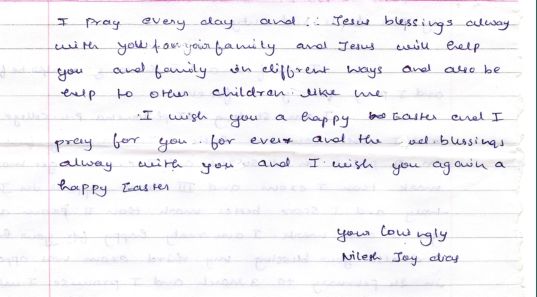 I pray every day and :: Jesus blessings alway
with you for your family and Jesus will help
you and family in diffrent ways and also be
help to other children like me
I wish you a happy Easter and I
pray for you . for ever and the blessings
alway with you and I wish you again a
happy Easter
your lovingly
Nilesh Joy dias